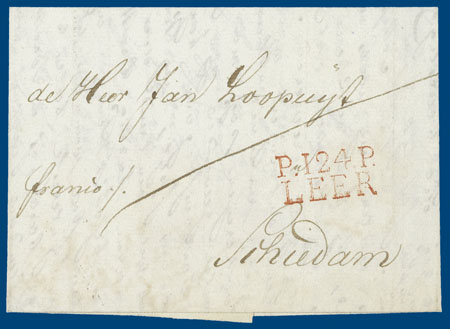 de Heer Jan Loopuÿt
franco /.
P.124.P.
LEER
Schiedam